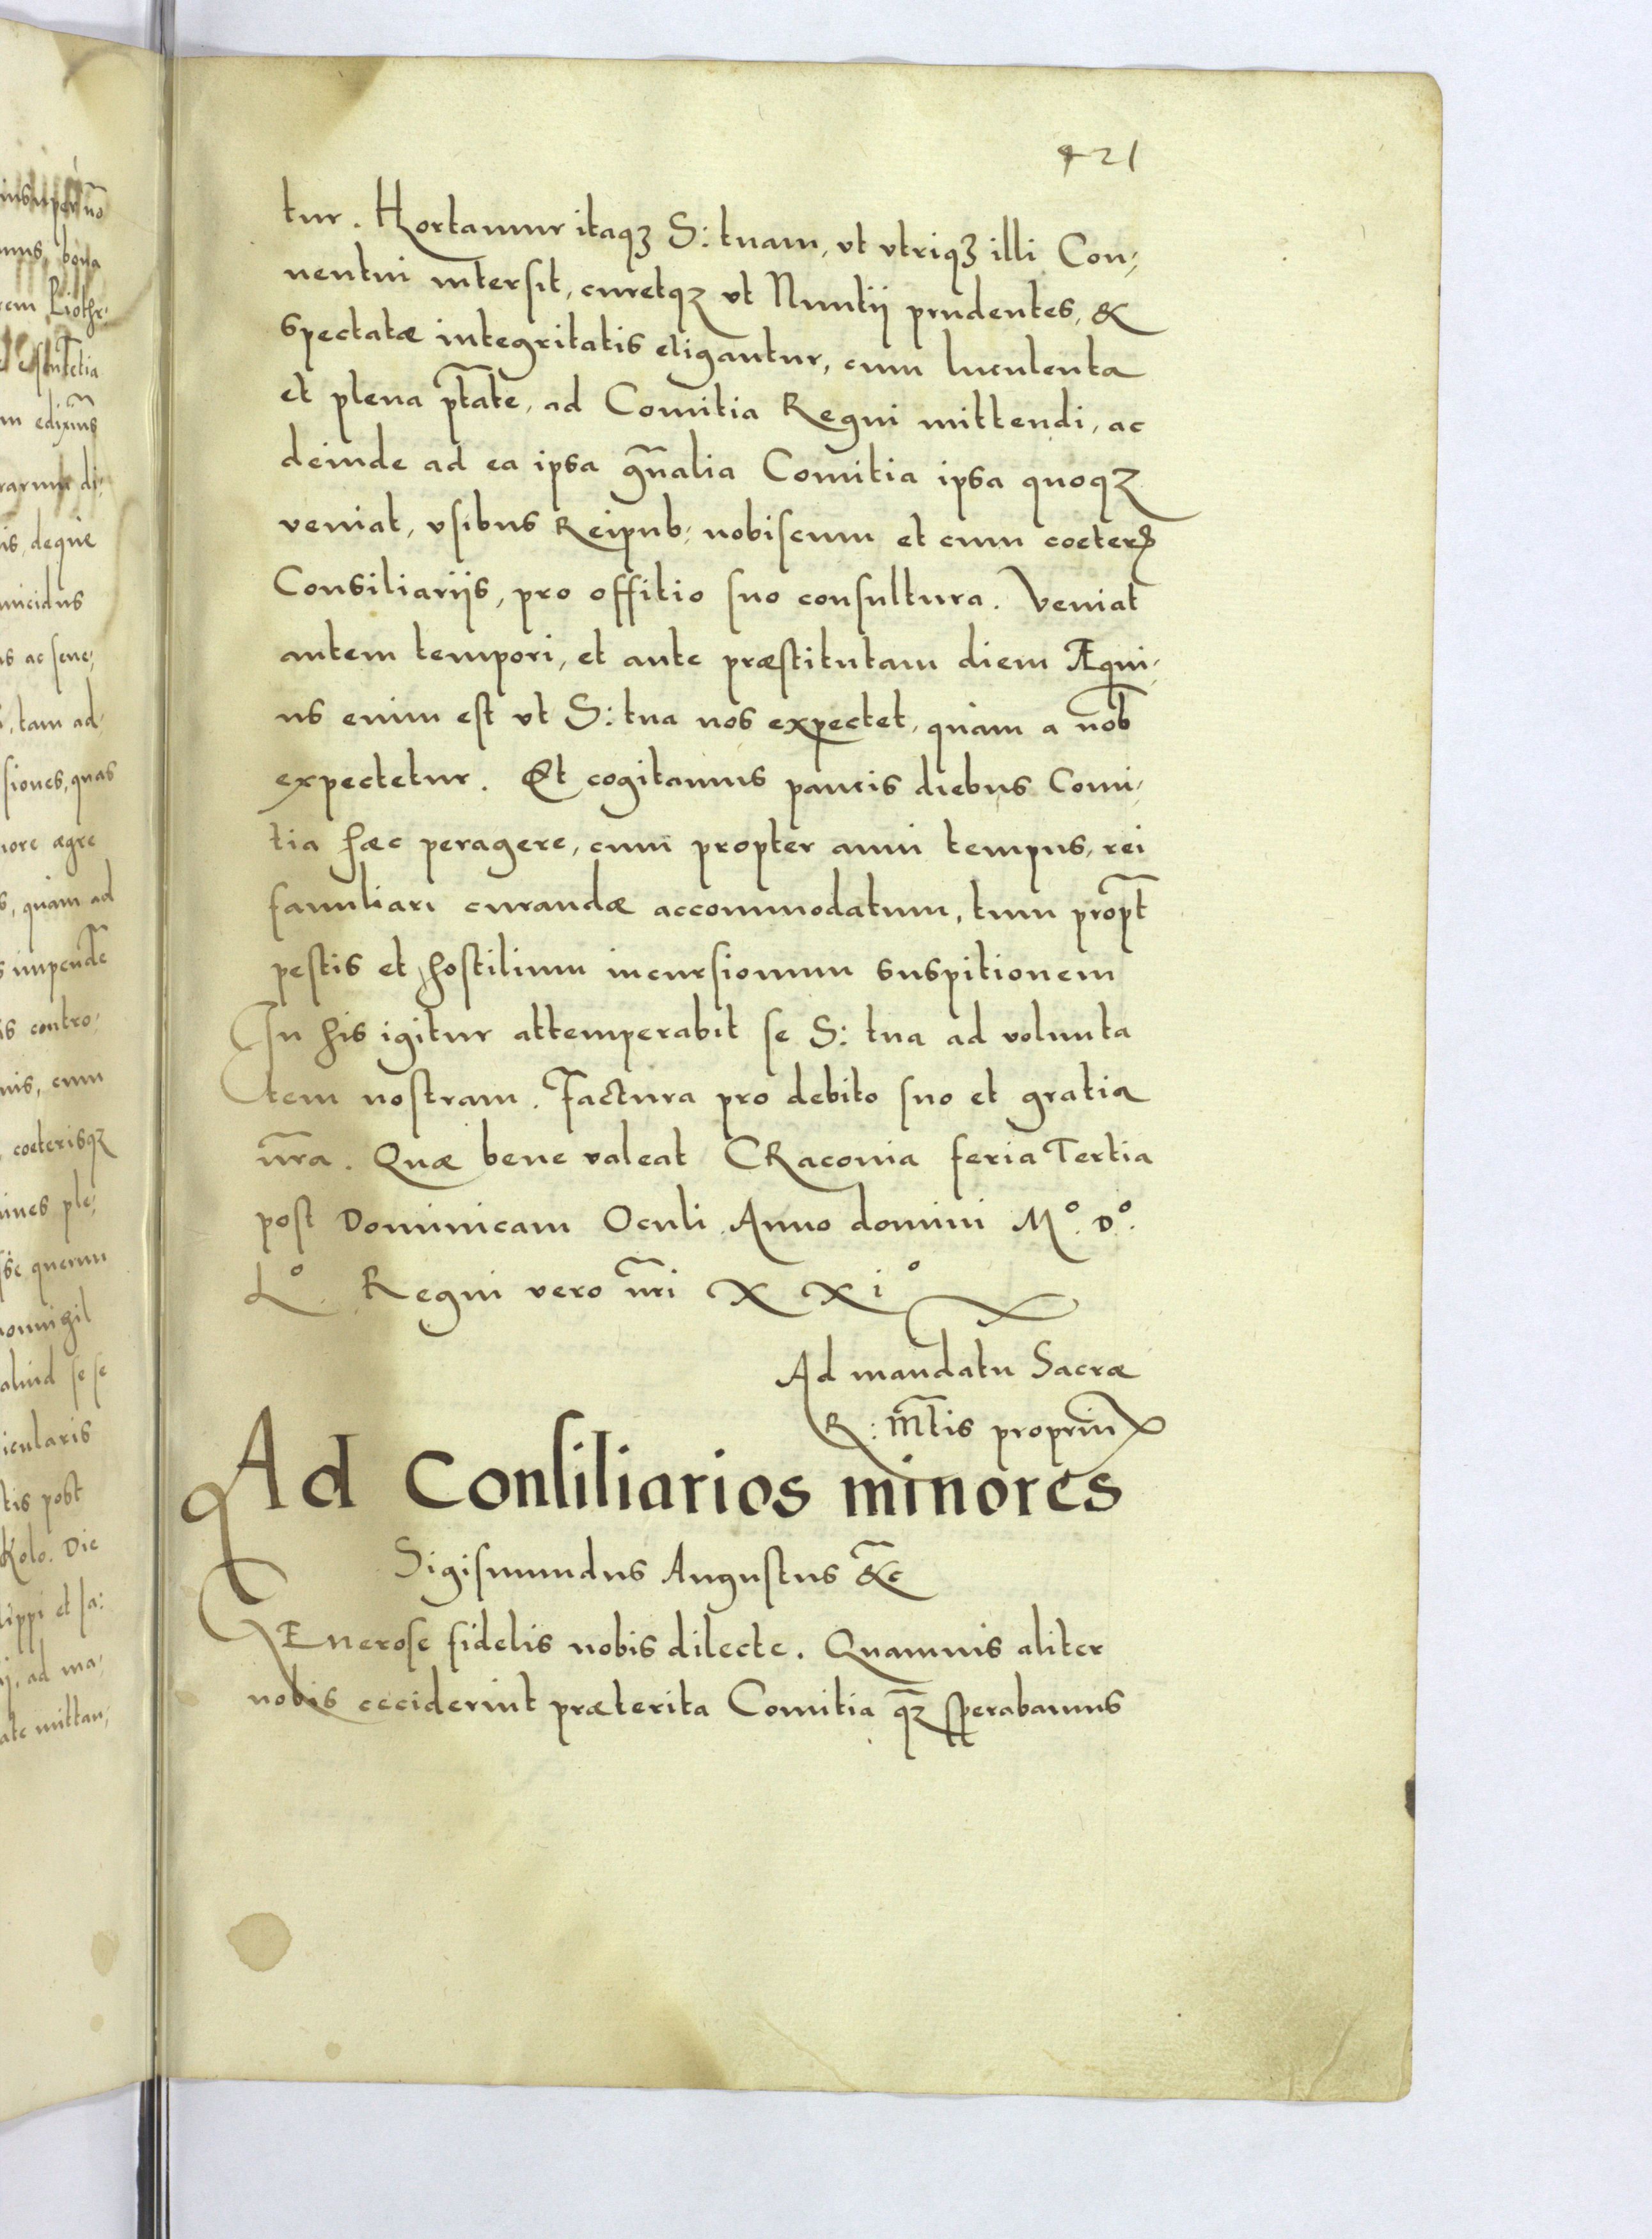 421
tur. Hortamur itaqꝫ S: tuam, vt vtriqꝫ illi Con,
uentui intersit, curetqꝫ vt Nuntij prudentes, &
spectatæ integritatis eligantur, cum luculenta
et plena pt̃ate, ad Comitia Regni mittendi, ac
deinde ad ea ipsa gñalia Comitia ipsa quoqꝫ
veniat, vsibus Reipub: nobiscum et cum coeterꝭ
Consiliarijs, pro offitio suo consultura. Veniat
autem tempori, et ante præstitutam diem Æqui,
us enim est vt S: tua nos expectet, quàm a nob̃
expectetur. Et cogitamus paucis diebus Comi,
tia hæc peragere, cum propter anni tempus, rei
familiari curandæ accommodatum, tum propt̃
pestis et hostilium incursionum suspitionem
In his igitur attemperabit se S: tua ad volunta
tem nostram. Factura pro debito suo et gratia
nr̃a. Quæ bene valeat CRaconia feria Tertia
post Dominicam Oculi Anno domini Mº. Dº.
Lº. Regni vero nr̃i XXiº
Ad mandatu Sacræ
R: Mt̃is propriũ
Ad Consiliarios minores
Sigismundus Augustus &̃c
GEnerose fidelis nobis dilecte. Quamuis aliter
nobis ceciderint præterita Comitia qꝫ̃ sperabamus
insuper nõ
bona
Piotr:
edixim̃s
di,
deque
ac sene,
tam ad,
siones, quas
ægre
quàm ad
contro,
cum
coeterisqꝫ
ple,
querun
aliud se se
icularis
post
Kolo. Die
et Ja:
ad ma,
mittan,